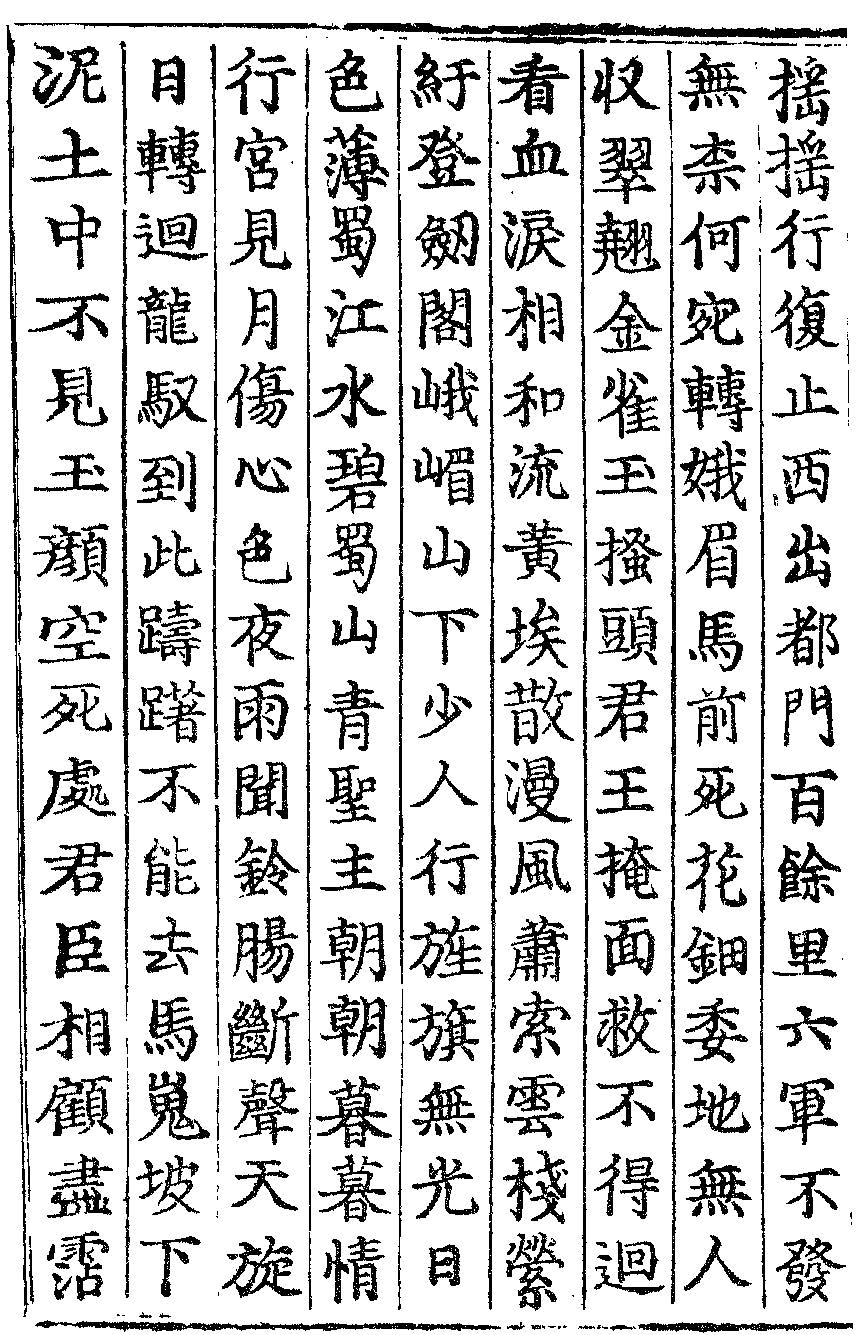 揺揺行復止西出都門百餘里六軍不發
無柰何宛轉娥眉馬前死花鈿委地無人
収翠翹金雀玉搔頭君王掩面救不得迴
看血淚相和流黃埃散漫風蕭索雲棧縈
紆登劒閣峨嵋山下少人行旌旗無光日
色薄蜀江水碧蜀山青聖主朝朝暮暮情
行宮見月傷心色夜雨聞鈴腸斷聲天旋
日轉迴龍馭到此躊躇不能去馬嵬坡下
泥土中不見玉顏空死處君臣相顧盡霑